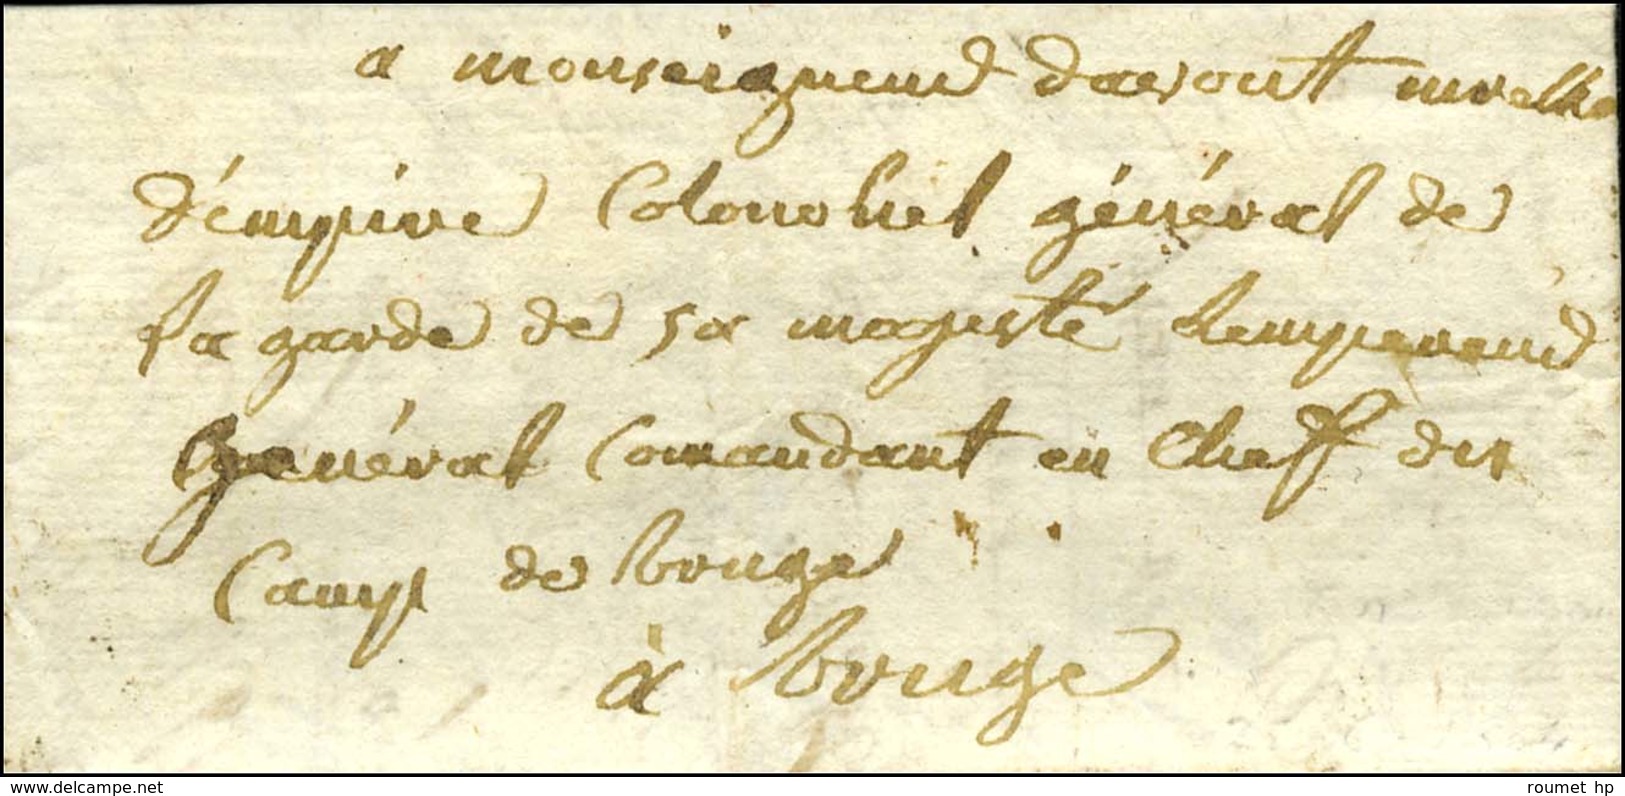 a monseigneur davout
d'empire Colonohel général de
la garde de sa majesté lempereur
général Comandant en Cheff du
Camp de bruge
à bruge
www.delcampe.net
roumet hp